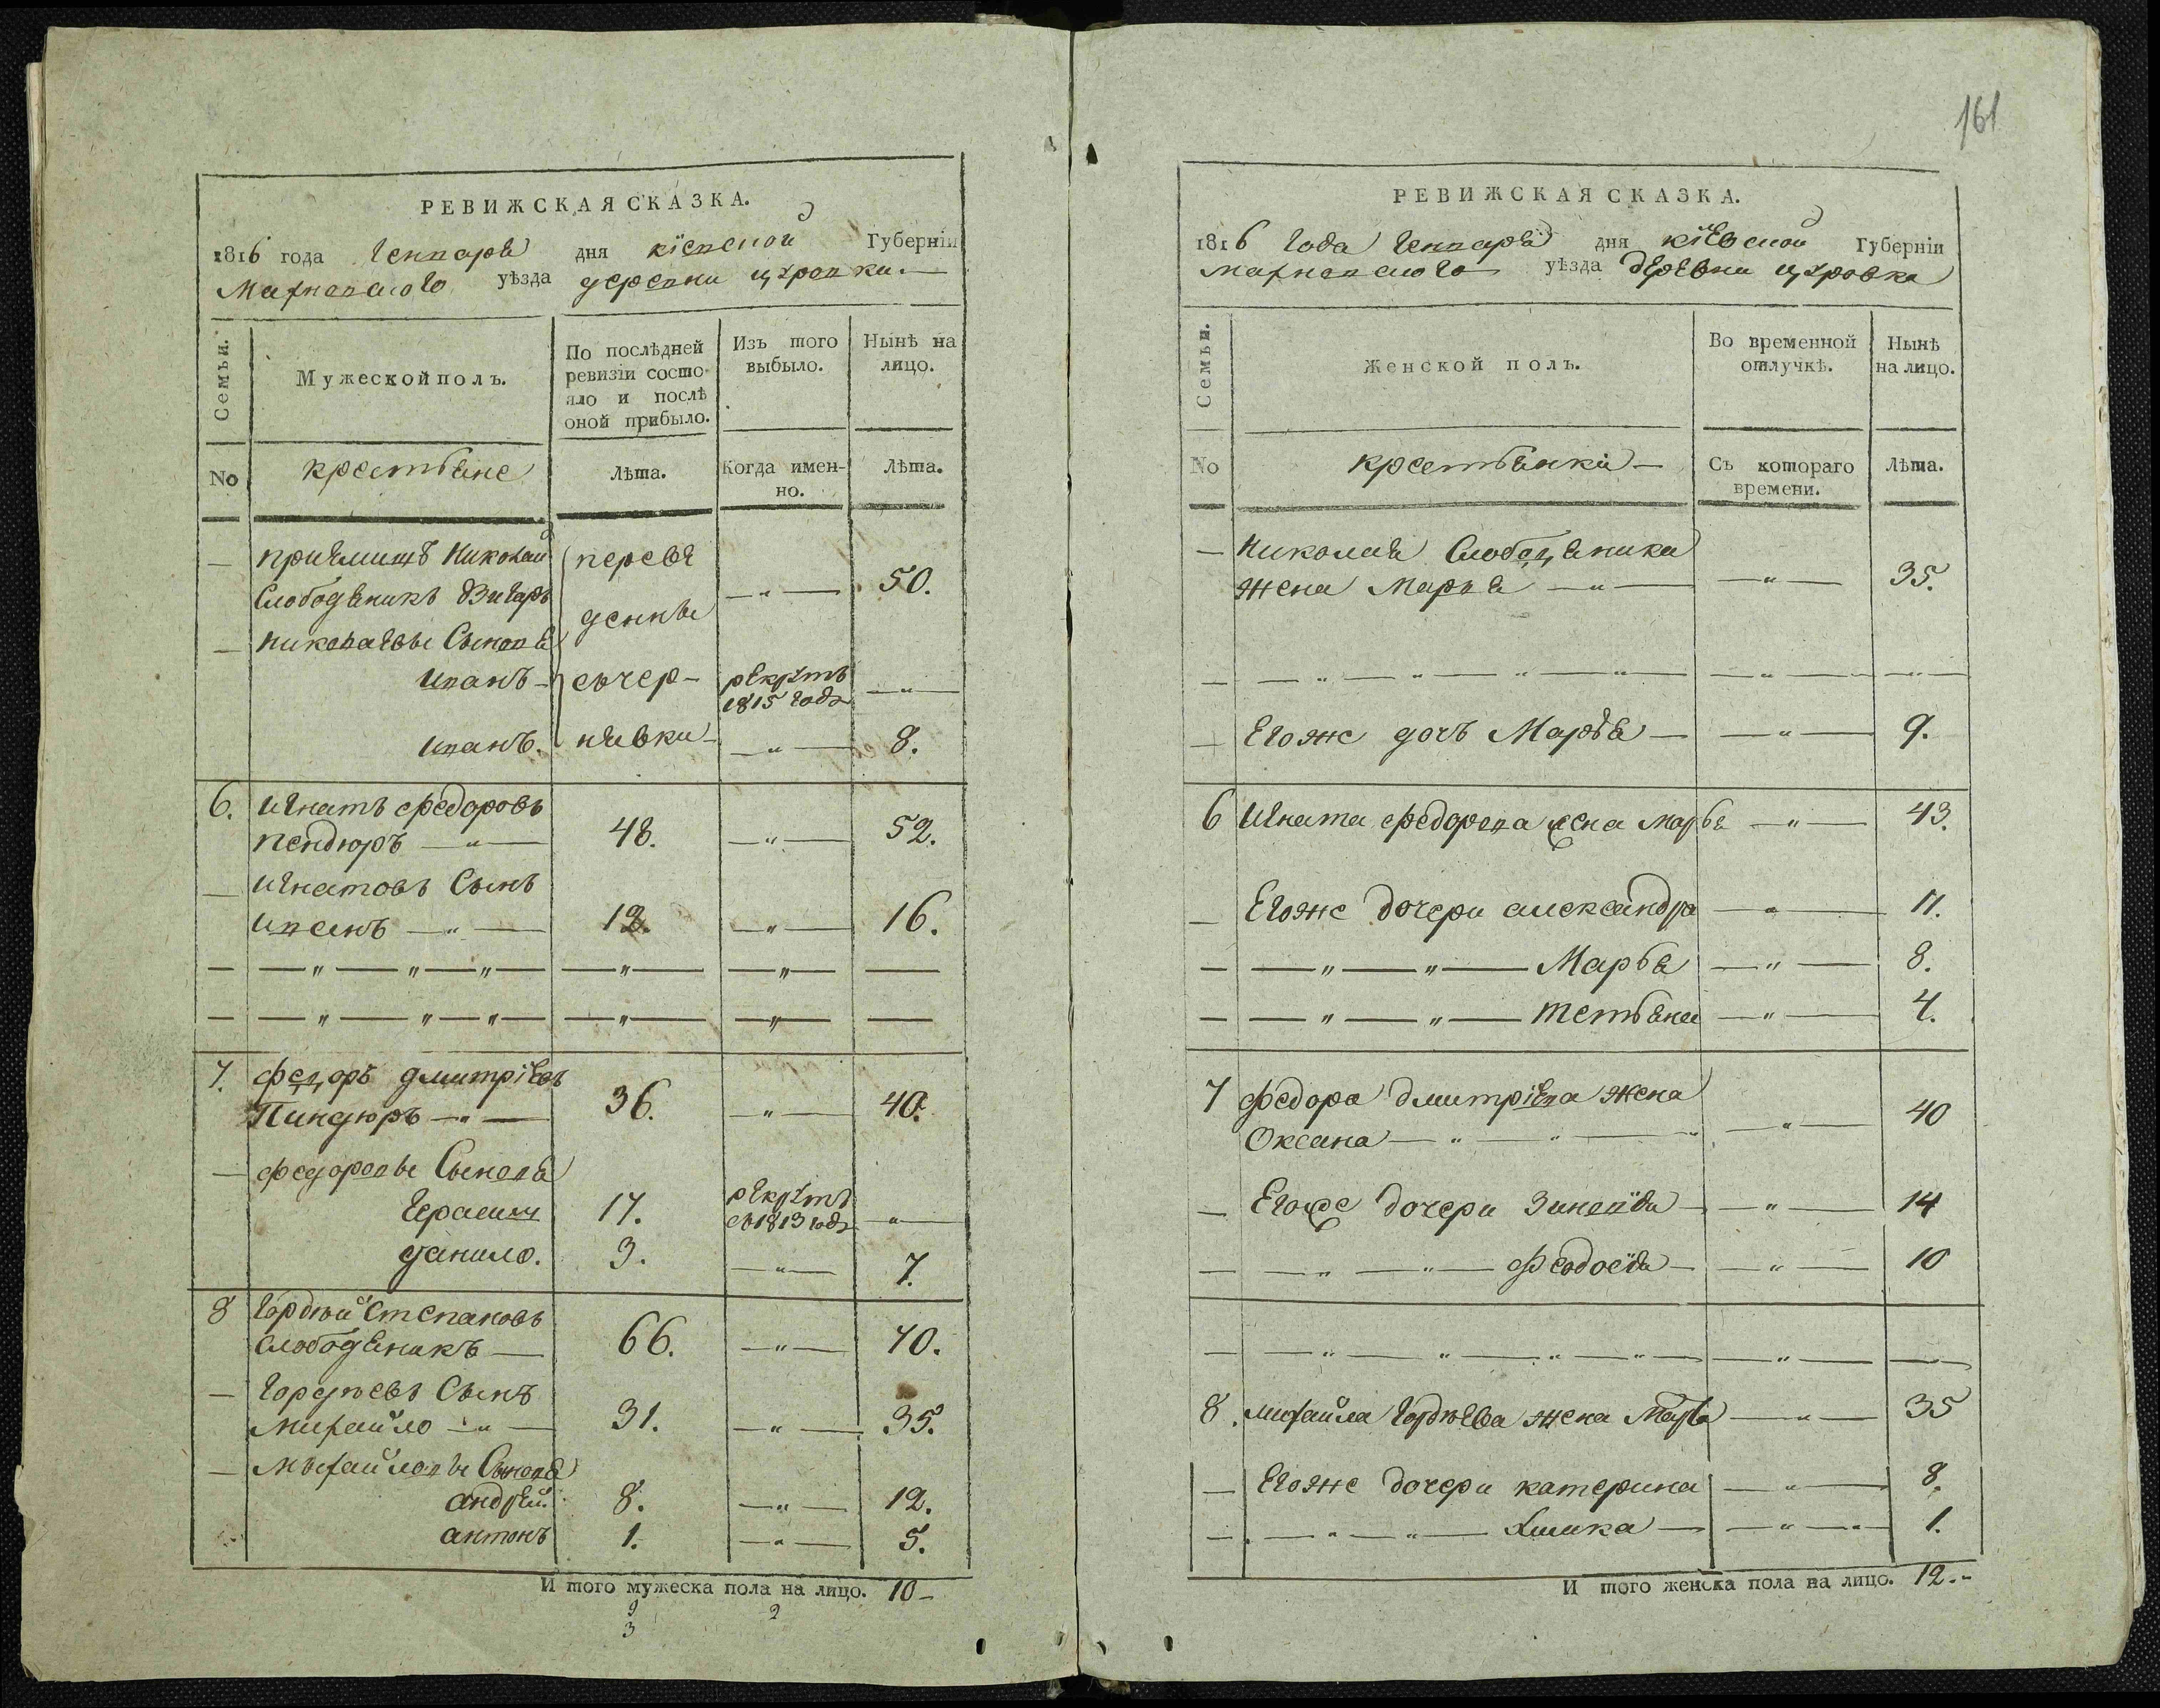 РЕВИЖСКАЯ СКАЗКА.
1816 года Генпаря дня кіевской Губерніи
Махновского уѣзда деревни цуровки
Семьи.
Мужеской полъ.
По послѣдней ревизіи состояло и послѣ оной прибыло.
Изъ того выбыло.
Нынѣ на лицо.
No
крестьяне
Лѣта.
Когда именно.
Лѣта.
— приемишъ Николай
Слободяникъ
переве
денъ
— „ — 50.
— николаевы Сыновя
иванъ — счер- рекрутъ 1815 года — „ —
иванъ. нявки — — „ — 8.
6. игнатъ федоровъ
пендюръ — „ — 48. — „ — 52.
— игнатовъ Сынъ
иванъ — „ — 12. — „ — 16.
— — „ — „ — „ — — „ — — „ — —
— — „ — „ — „ — — „ — — „ — —
7. федоръ дмитріевъ
Пиндюръ — „ — 36. — „ — 40.
— федоровы Сыновя
герасим 17. рекрутъ
съ 1813 года — „ —
данило. 3. — „ — 7.
8 гордѣй степановъ
слободяникъ — 66. — „ — 70.
— гордѣевъ Сынъ
михайло — „ — 31. — „ — 35.
— михайловы Сыновя
андрей 8. — „ — 12.
антонъ 1. — „ — 5.
И того мужеска пола на лицо. 10 –
9 2
3
161
РЕВИЖСКАЯ СКАЗКА.
1816 года Генваря дня кіевской Губерніи
махновского уѣзда деревни цуровка
Семьи.
Женской полъ.
Во временной отлучкѣ.
Нынѣ на лицо.
No
крестьянки —
Съ котораго времени.
Лѣта.
— николая Слободяника
жена Маръя — „ — — „ — 35.
— — „ — „ — „ — „ — — „ — — „ —
— Егоже дочъ Маръя — — „ — 9.
6 игната федорова жена маръя — „ — 43.
— Егоже дочери александра — „ — 11.
— — „ — „ — Марья — „ — 8.
— — „ — „ — тетьяна — „ — 4.
7 федора дмитріева жена
Оксана — „ — „ — „ — „ — 40
— Егоже дочери Зиновія — — „ — 14
— — „ — „ — феодосія — — „ — 10
— — „ — „ — „ — „ — — „ — —
8. михайла гордѣева жена Маръя — „ — 35
— Егоже дочери катерина — „ — 8.
— — „ — „ — — „ — „ 1.
И того женска пола на лицо. 12.-